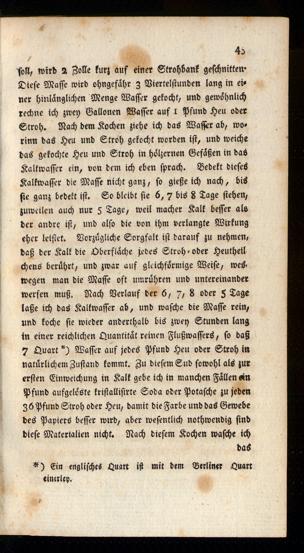 45
soll, wird 2 Zolle kurz auf einer Strohbank geschnitten.
Diese Masse wird ohngefähr 3 Viertelstunden lang in ei-
ner hinlänglichen Menge Wasser gekocht, und gewöhnlich
rechne ich zwey Gallonen Wasser auf 1 Pfund Heu oder
Stroh. Nach dem Kochen ziehe ich das Wasser ab, wo-
rinn das Heu und Stroh gekocht worden ist, und weiche
das gekochte Heu und Stroh in hölzernen Gefäßen in das
Kalkwasser ein, von dem ich eben sprach. Bedekt dieses
Kalkwasser die Masse nicht ganz, so gieße ich nach, bis
sie ganz bedekt ist. So bleibt sie 6, 7 bis 8 Tage stehen,
zuweilen auch nur 5 Tage, weil macher Kalk besser als
der andre ist, und also die von ihm verlangte Wirkung
eher leistet. Vorzügliche Sorgfalt ist darauf zu nehmen,
daß der Kalk die Oberfläche jedes Stroh- oder Heutheil-
chens berührt, und zwar auf gleichförmige Weise, wes-
wegen man die Masse oft umrühren und untereinander
werfen muß. Nach Verlauf der 6, 7, 8 oder 5 Tage
laße ich das Kalkwasser ab, und wasche die Masse rein,
und koche sie wieder anderthalb bis zwey Stunden lang
in einer reichlichen Quantität reinen Flußwassers, so daß
7 Quart *) Wasser auf jedes Pfund Heu oder Stroh in
natürlichem Zustand kommt. Zu diesem Sud sowohl als zur
ersten Einweichung in Kalk gebe ich in manchen Fällen ein
Pfund aufgelöste kristallisirte Soda oder Potasche zu jeden
36 Pfund Stroh oder Heu, damit die Farbe und das Gewebe
des Papiers besser wird, aber wesentlich nothwendig sind
diese Materialien nicht. Nach diesem Kochen wasche ich
das
*) Ein englisches Quart ist mit dem Berliner Quart
einerley.